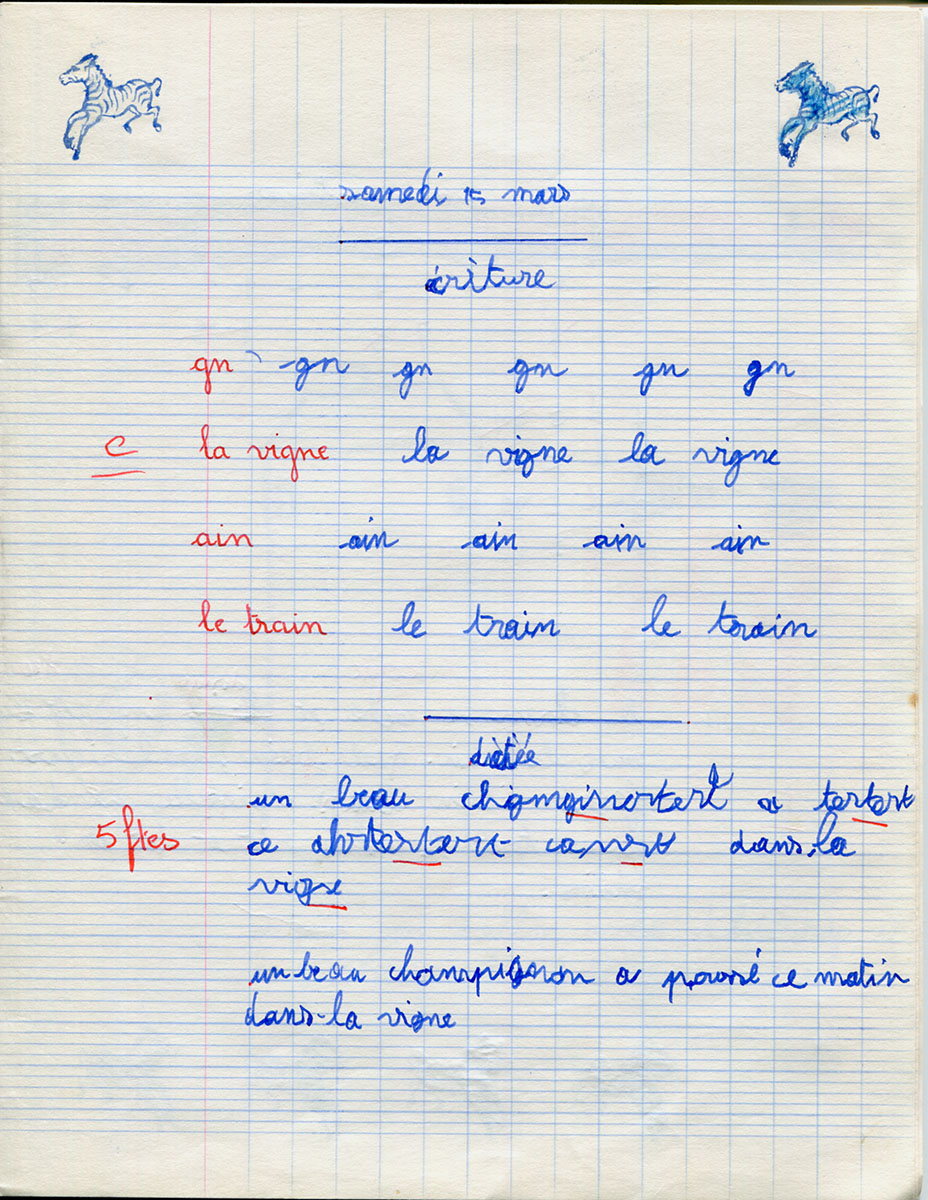 samedi 15 mars
écriture
gn gn gn gn gn gn
C la vigne la vigne la vigne
ain ain ain ain ain
le train le train le train
dictée
un beau a tertert
5 ftes ce dans la
vigne
un beau champignon a poussé ce matin
dans la vigne